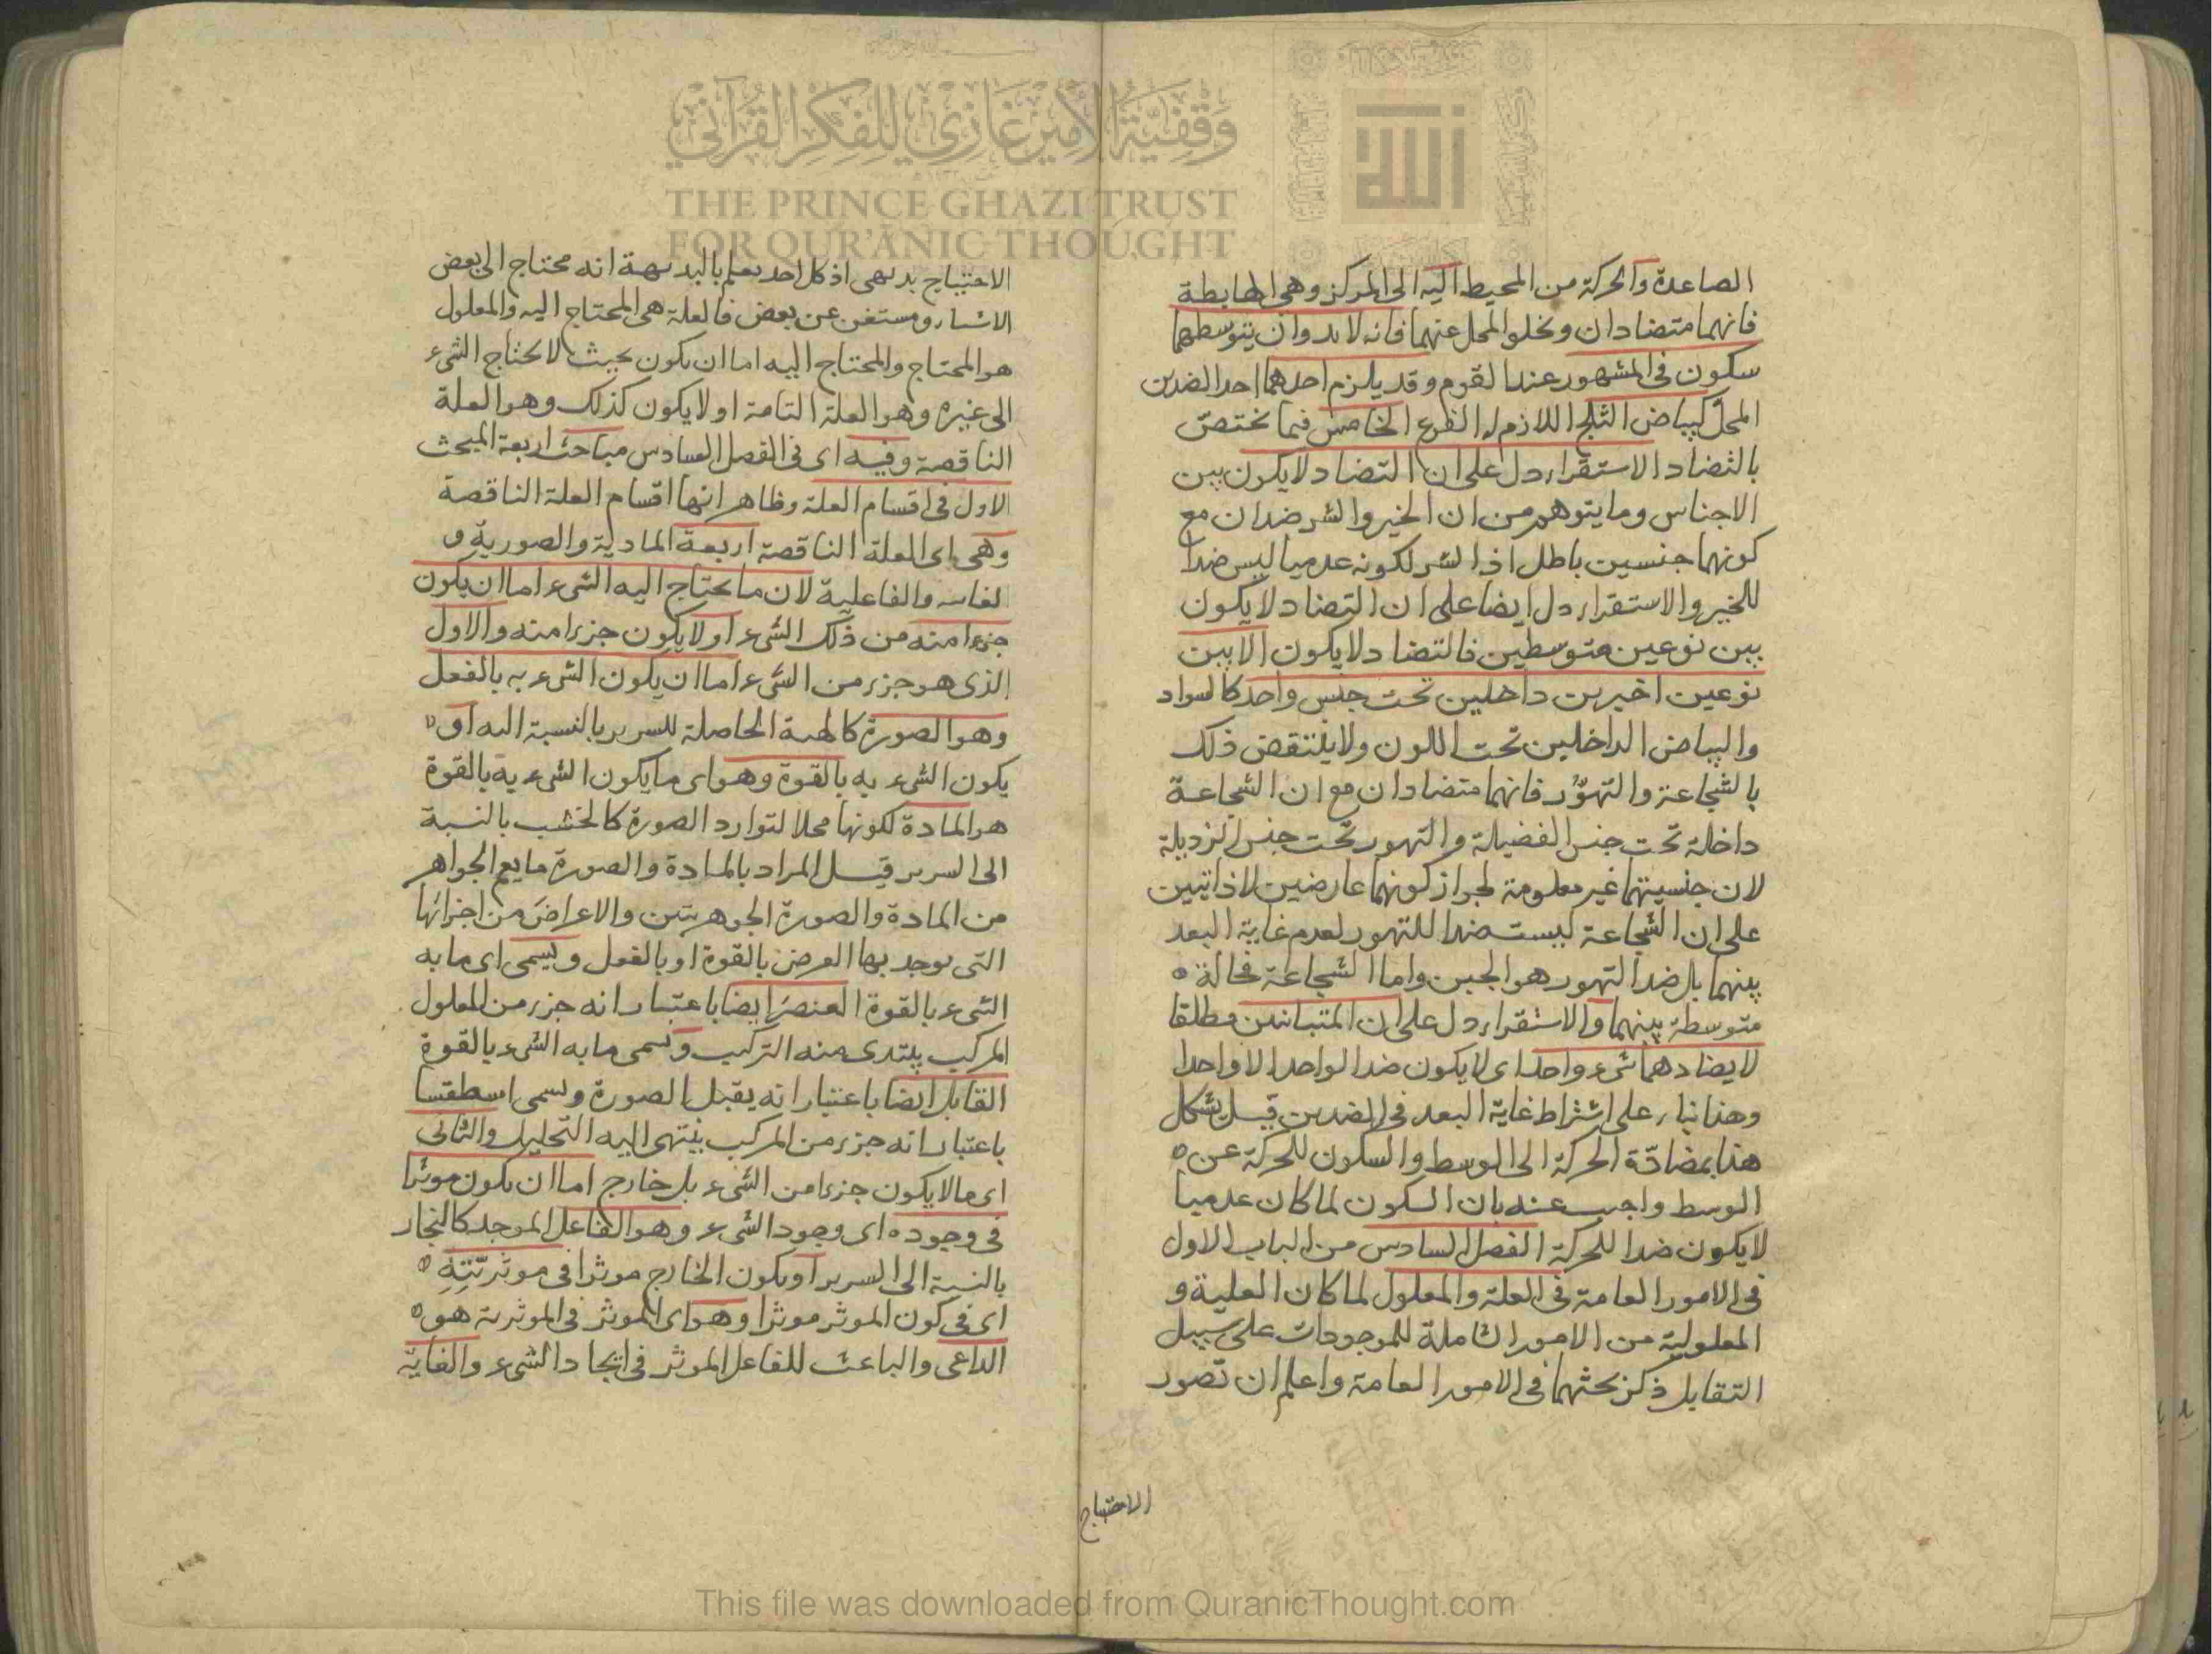 الصاعدة والحركة من المحيط اليه الى المركز وهى الهابطة
فانهما متضادان ويخلوا المحل عنهما فانه لا بد وان يتوسطهما
سكون فى المشهور عند القوم وقد يلزم احدهما احد الضدين
المحل كبياض الثلج اللازم له الفرع الخامس فيما يختص
بالتضاد الاستقراء دل على ان التضاد لا يكون بين
الاجناس وما يتوهم من ان الخير والشر ضدان مع
كونهما جنسين باطل اذ الشر لكونه عدميا ليس ضدا
للخير والاستقراء دل ايضا على ان التضاد لا يكون
بين نوعين متوسطين فالتضاد لا يكون الا بين
نوعين اخيرين داخلين تحت جنس واحد كالسواد
والبياض الداخلين تحت اللون ولا ينتقض ذلك
بالشجاعة والتهوّر فانهما متضادان مع ان الشجاعة
داخلة تحت جنس الفضيلة والتهور تحت جنس الرذيلة
لان جنسيتهما غير معلومة لجواز كونهما عارضين لا ذاتيين
على ان الشجاعة ليست ضدا للتهور لعدم غاية البعد
بينهما بل ضد التهور هو الجبن واما الشجاعة فحالة
متوسطة بينهما والاستقراء دل على ان المتباينين مطلقا
لا يضادهما شىء واحد اى لا يكون ضد الواحد الا واحدا
وهذا بناء على اشتراط غاية البعد فى الضدين قيل يشكل
هذا بمضادّة الحركة الى الوسط والسكون للحركة عن
الوسط واجيب عنه بان السكون لما كان عدميا
لا يكون ضدا للحركة الفصل السادس من الباب الاول
فى الامور العامة فى العلة والمعلول لما كان العلية و
المعلولية من الامور الشاملة للموجودات على سبيل
التقابل ذكر بحثهما فى الامور العامة واعلم ان تصور
الاحتياج
الاحتياج بديهى اذ كل احد يعلم بالبديهة انه محتاج الى بعض
الاشياء ومستغن عن بعض فالعلة هى المحتاج اليه والمعلول
هو المحتاج والمحتاج اليه اما ان يكون بحيث لا يحتاج الشىء
الى غيره وهو العلة التامة او لا يكون كذلك وهو العلة
الناقصة وفيه اى فى الفصل السادس مباحث اربعة المبحث
الاول فى اقسام العلة وظاهر انها اقسام العلة الناقصة
وهى اى العلة الناقصة اربعة المادية والصورية و
الغاية والفاعلية لان ما يحتاج اليه الشىء اما ان يكون
جزءا منه من ذلك الشىء او لا يكون جزءا منه والاول
الذى هو جزء من الشىء اما ان يكون الشىء به بالفعل
وهو الصورة كالهيئة الحاصلة للسرير بالنسبة اليه او
يكون الشىء به بالقوة وهو اى ما يكون الشىء به بالقوة
هو المادة لكونها محلا لتوارد الصورة كالخشب بالنسبة
الى السرير قيل المراد بالمادة والصورة ما يعم الجواهر
من المادة والصورة الجوهريتين والاعراض من اجزائها
التى يوجد بها العرض بالقوة او بالفعل ويسمى اى ما به
الشىء بالقوة العنصر ايضا باعتبار انه جزء من المعلول
المركب يبتدى منه التركيب ويسمى ما به الشىء بالقوة
القابل ايضا باعتبار انه يقبل الصورة ويسمى اسطقسا
باعتبار انه جزء من المركب ينتهى اليه التحليل والثانى
اى ما لا يكون جزءا من الشىء بل خارج اما ان يكون موثرا
فى وجوده اى وجود الشىء وهو الفاعل الموجد كالنجار
بالنسبة الى السرير او يكون الخارج موثرا فى موثريّته
اى فى كون الموثر موثرا وهو اى الموثر فى الموثرية هو
الداعى والباعث للفاعل الموثر فى ايجاد الشىء والغاية
وقفية الأمير غازي للفكر القرآني
THE PRINCE GHAZI TRUST
FOR QUR'ĀNIC THOUGHT
الله
This file was downloaded from QuranicThought.com